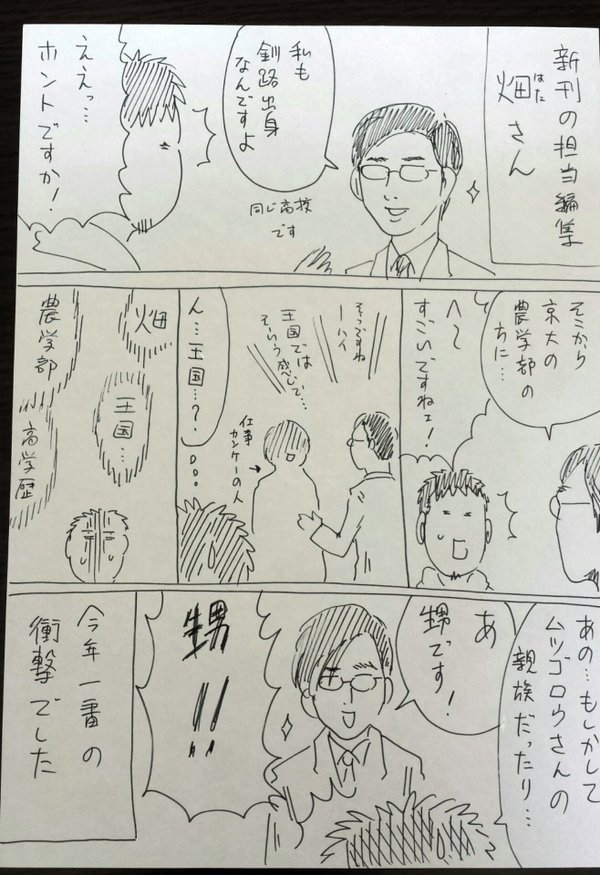 新刊の担当編集
畑さん
はた
私も
釧路出身
なんですよ
同じ高校
です
ええっ…
ホントですか!
そこから
京大の
農学部の
ちに…
へ〜
すごいですねェ!
そっですね
ーハイ
王国では
そういう感じで…
仕事
カンケーの人
ん…王国…?
畑
王国…
農学部
高学歴
あの…もしかして
ムツゴロウさんの
親族だったり…
あ
甥です!
甥!!
今年一番の
衝撃でした